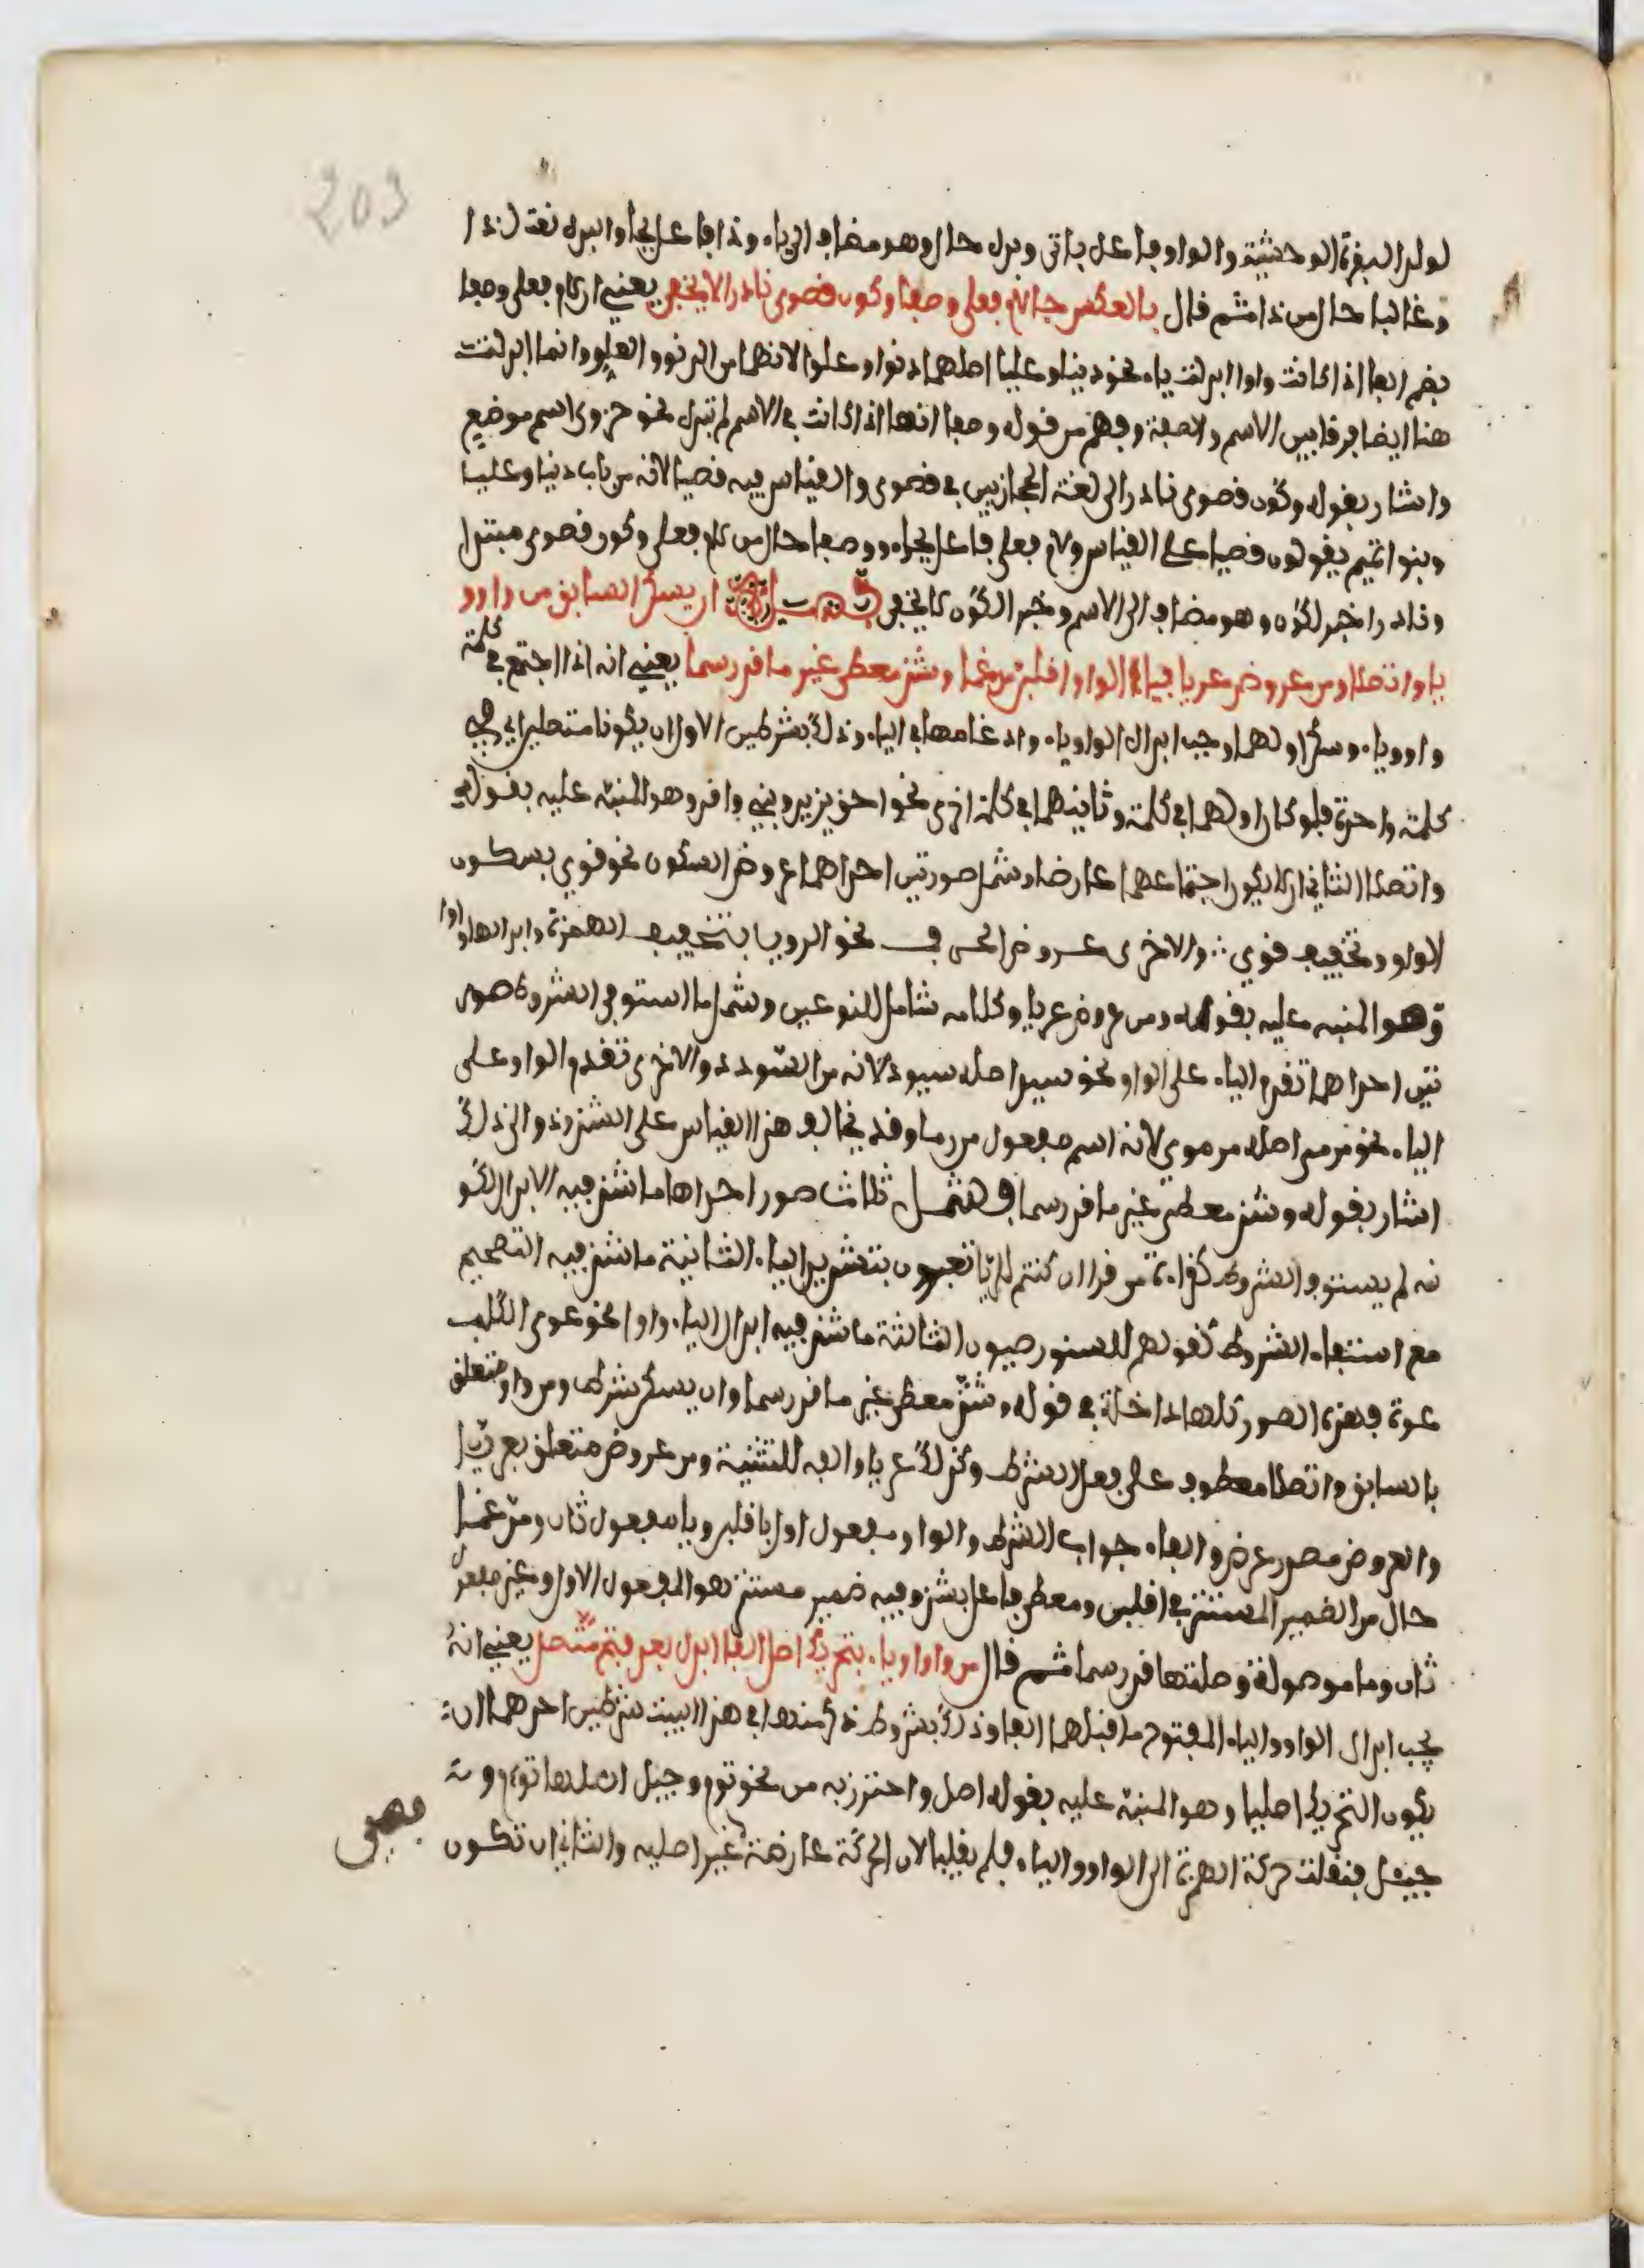 203
لولد البقرة الوحشية والواو فاعل ياتي وبدل حال وهو مضاف الى ياء وذا فاعل بجا والبدل نعت لذا
وغالبا حال من ذا ثم قال بالعكس جا لام فعلى وصفا وكون قصوى نادرا لا يخفى يعني ان لام فعلى وصفا
بضم الفا اذا كانت واوا ابدلت ياء نحو دنيا وعليا اصلهما دنوا وعلوا لانهما من الدنو والعلو وانما ابدلت
هنا ايضا فرقا بين الاسم والصفة وفهم من قوله وصفا انها اذا كانت في الاسم لم تبدل نحو حزوى اسم موضع
واشار بقوله وكون قصوى نادرا الى لغة الحجازيين في قصوى والقياس فيه قصيا لانه من باب دنيا وعليا
وبنوا تميم يقولون قصيا على القياس ولام فعلى فاعل بجاء ووصفا حال من لام فعلى وكون قصوى مبتدا
ونادرا خبر لكون وهو مضاف الى الاسم وخبر الكون لا يخفى فصل ان يسكن السابق من واو و
يا واتصلا ومن عروض عريا فياء الواو اقلبن مدغما وشذ معطى غير ما قد رسما يعني انه اذا اجتمع في كلمة
واو وياء وسكن اولهما وجب ابدال الواو ياء وادغامها في الياء وذلك بشرطين الاول ان يكونا متصلين اي في
كلمة واحدة فلو كان اولهما في كلمة وثانيهما في كلمة اخرى نحو اخو يزيد وبني وافد وهو المنبه عليه بقوله
واتصلا الثاني ان لا يكون اجتماعهما عارضا وشمل صورتين احداهما عروض السكون نحو قوي بسكون
الواو وتخفيف قوي والاخرى عروض الحرف نحو الرويا بتخفيف الهمزة وابدالها واوا
وهو المنبه عليه بقوله ومن عروض عريا وكلامه شامل للنوعين وشمل ما استوفى الشروط صور
تين احداهما تقدم الياء على الواو نحو سيد اصله سيود لانه من السودد والاخرى تقدم الواو على
الياء نحو مرمي اصله مرموي لانه اسم مفعول من رما وقد يخالف هذا القياس على الشذوذ والى ذلك
اشار بقوله وشذ معطى غير ما قد رسما فشمل ثلاث صور احداها ما شذ فيه الابدال لكو
نه لم يستوف الشروط كقراءة من قرا ان كنتم للريا تعبرون بتشديد الياء الثانية ما شذ فيه التصحيح
مع استيفاء الشروط كقولهم للسنور ضيون الثالثة ما شذ فيه ابدال الياء واوا نحو عوى الكلب
عوة فهذه الصور كلها داخلة في قوله وشذ معطى غير ما قد رسما وان يسكن شرط ومن واو متعلق
بالسابق واتصلا معطوف على فعل الشرط وكذلك عريا والفه للتثنية ومن عروض متعلق بعريا
والعروض مصدر عرض والفاء جواب الشرط والواو مفعول اول باقلبن ويا مفعول ثان ومدغما
حال من الضمير المستتر في اقلبن ومعطى فاعل بشذ وفيه ضمير مستتر هو المفعول الاول وغير مفعول
ثان وما موصولة وصلتها قد رسما ثم قال من واو او ياء بتحريك اصل الفا ابدل بعد فتح متصل يعني انه
يجب ابدال الواو والياء المفتوح ما قبلهما الفا وذلك بشروط ذكر منها في هذا البيت شرطين احدهما ان
يكون التحريك اصليا وهو المنبه عليه بقوله اصل واحترز به من نحو توم وجيل اصلهما توءم و
جيئل فنقلت حركة الهمزة الى الواو والياء فلم يقلبا لان الحركة عارضة غير اصلية والثاني ان تكون